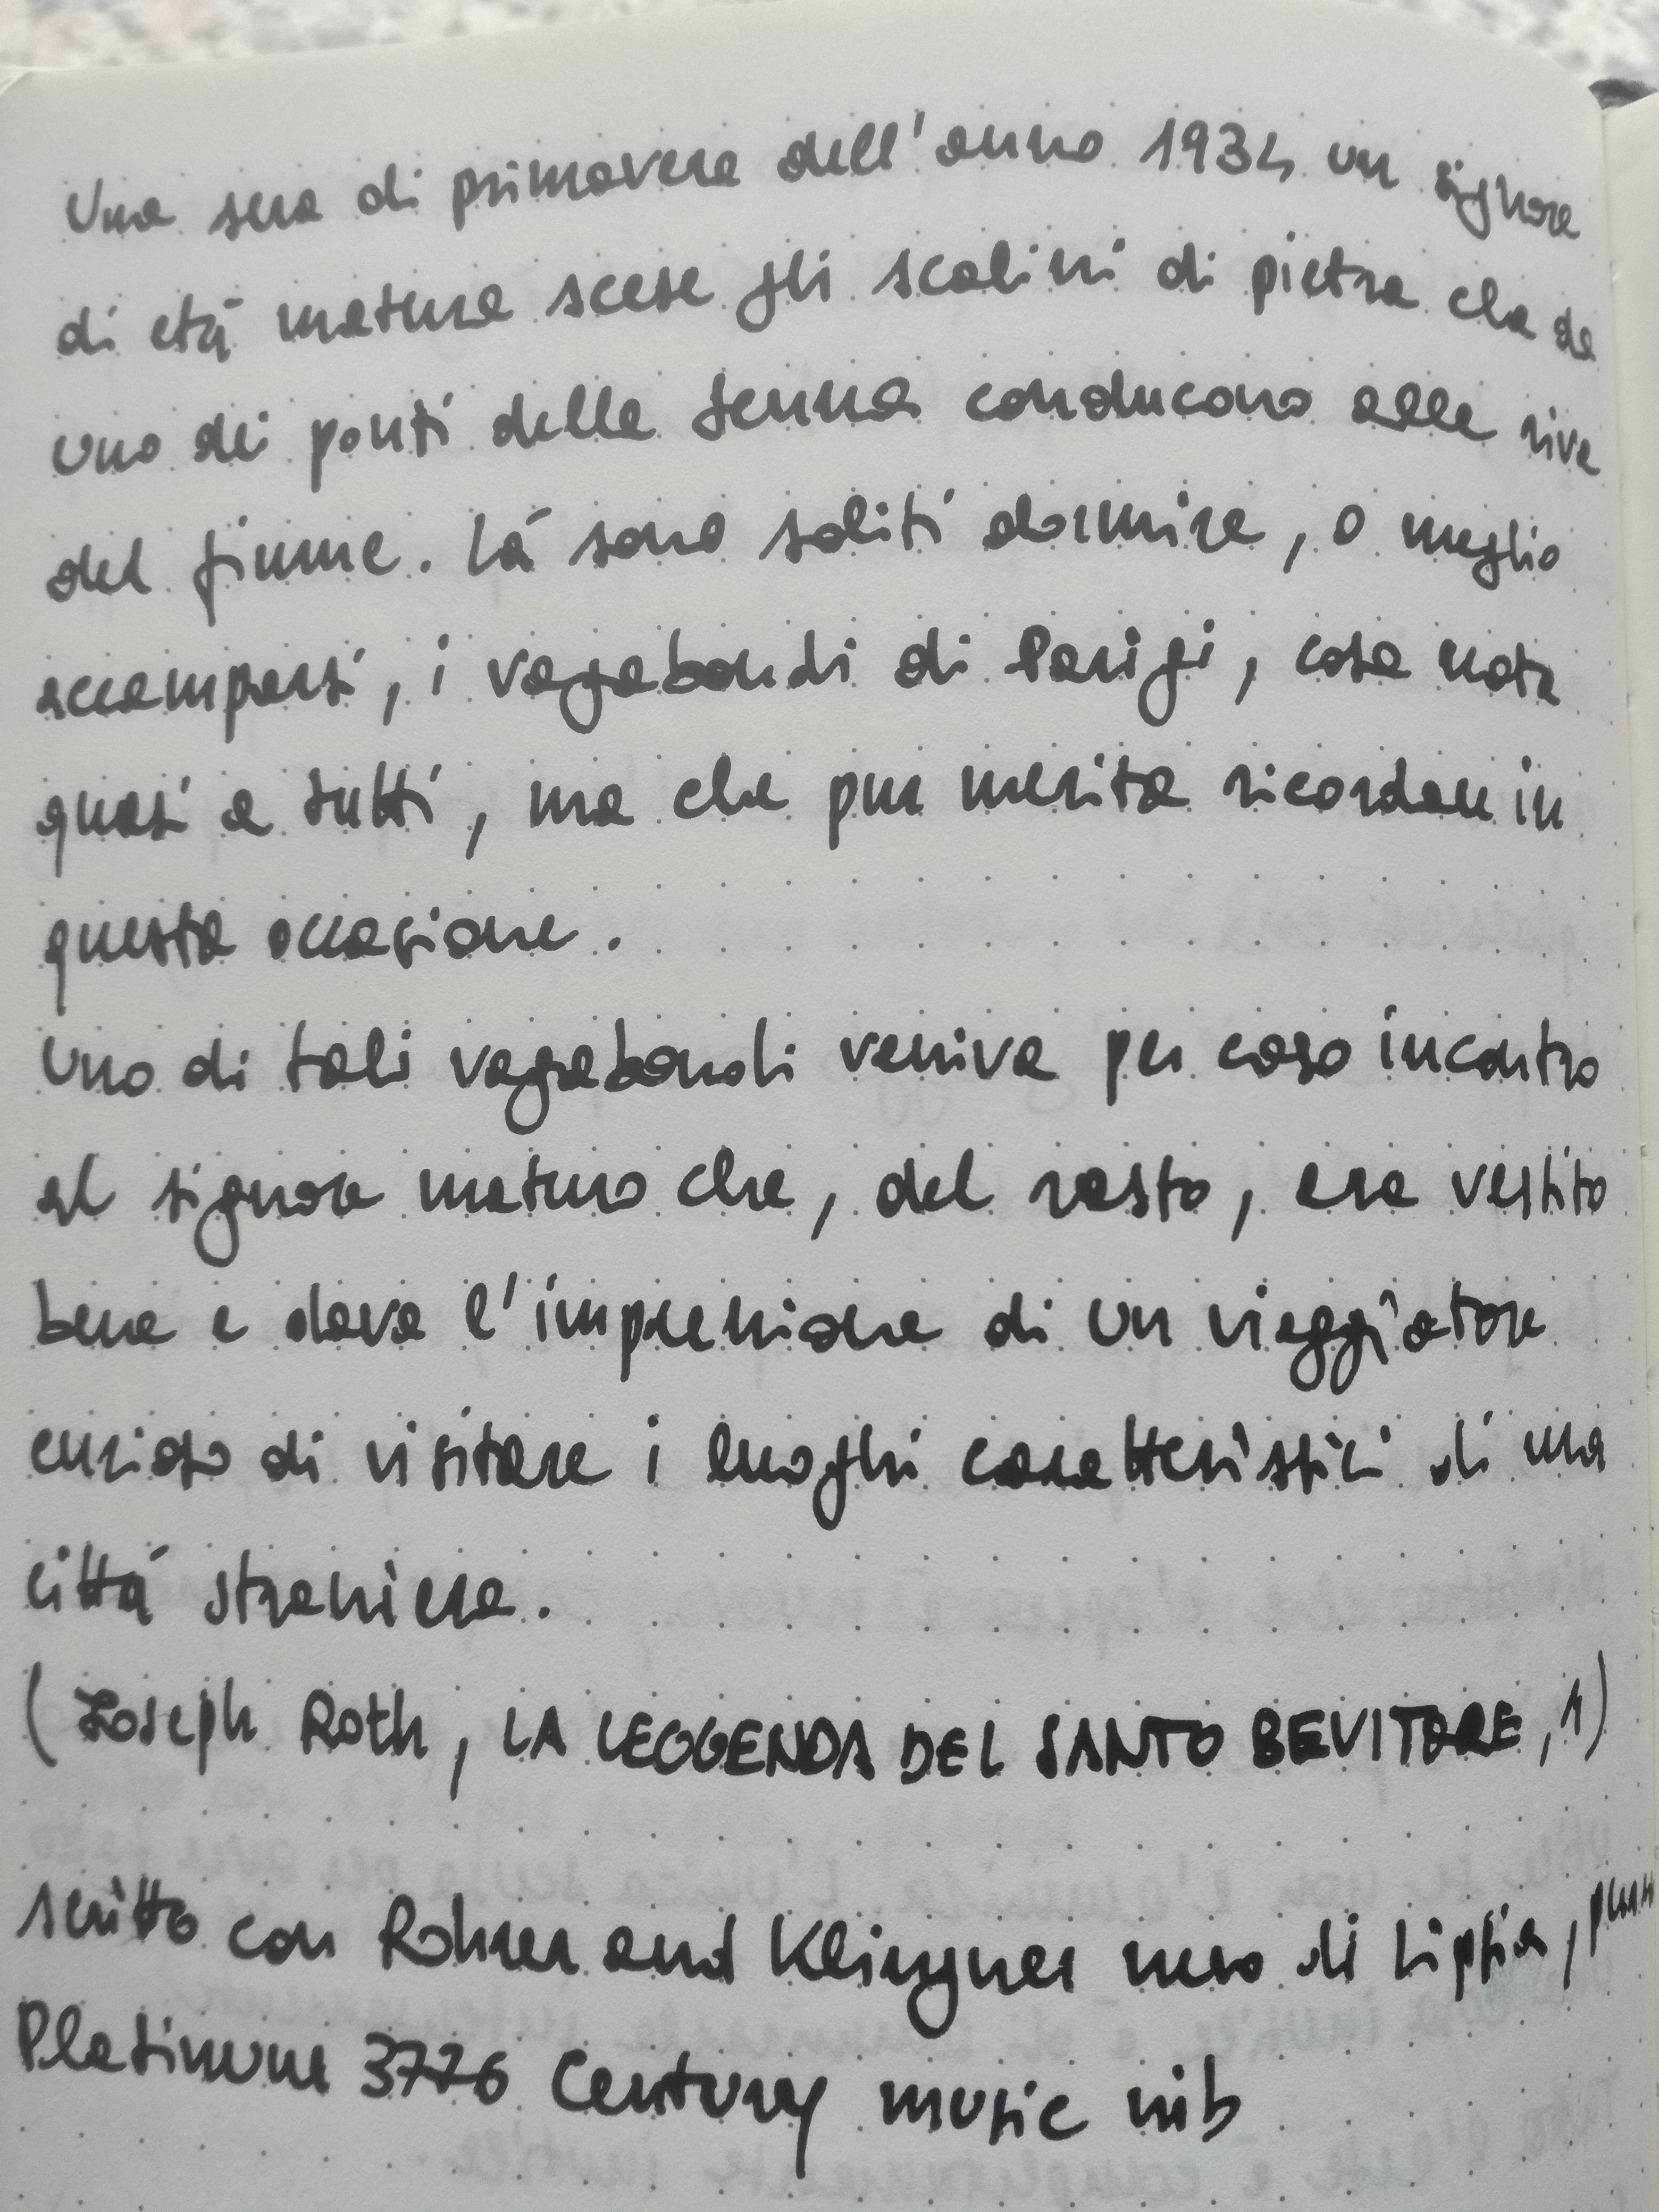 Una sera di primavera dell'anno 1934 un signore
di etá matura scese gli scalini di pietra che da
uno dei ponti della Senna conducono alle rive
del fiume. Lá sono soliti dormire, o meglio
accamparsi, i vagabondi di Parigi, cosa nota
quasi a tutti, ma che pur merita ricordare in
questa occasione.
Uno di tali vagabondi veniva per caso incontro
al signore maturo che, del resto, era vestito
bene e dava l'impressione di un viaggiatore
curioso di visitare i luoghi caratteristici di una
cittá straniera.
(Joseph Roth, LA LEGGENDA DEL SANTO BEVITORE, 1)
scritto con Rohrer and Klingner nero di Lipsia, penna
Platinum 3776 Century music nib